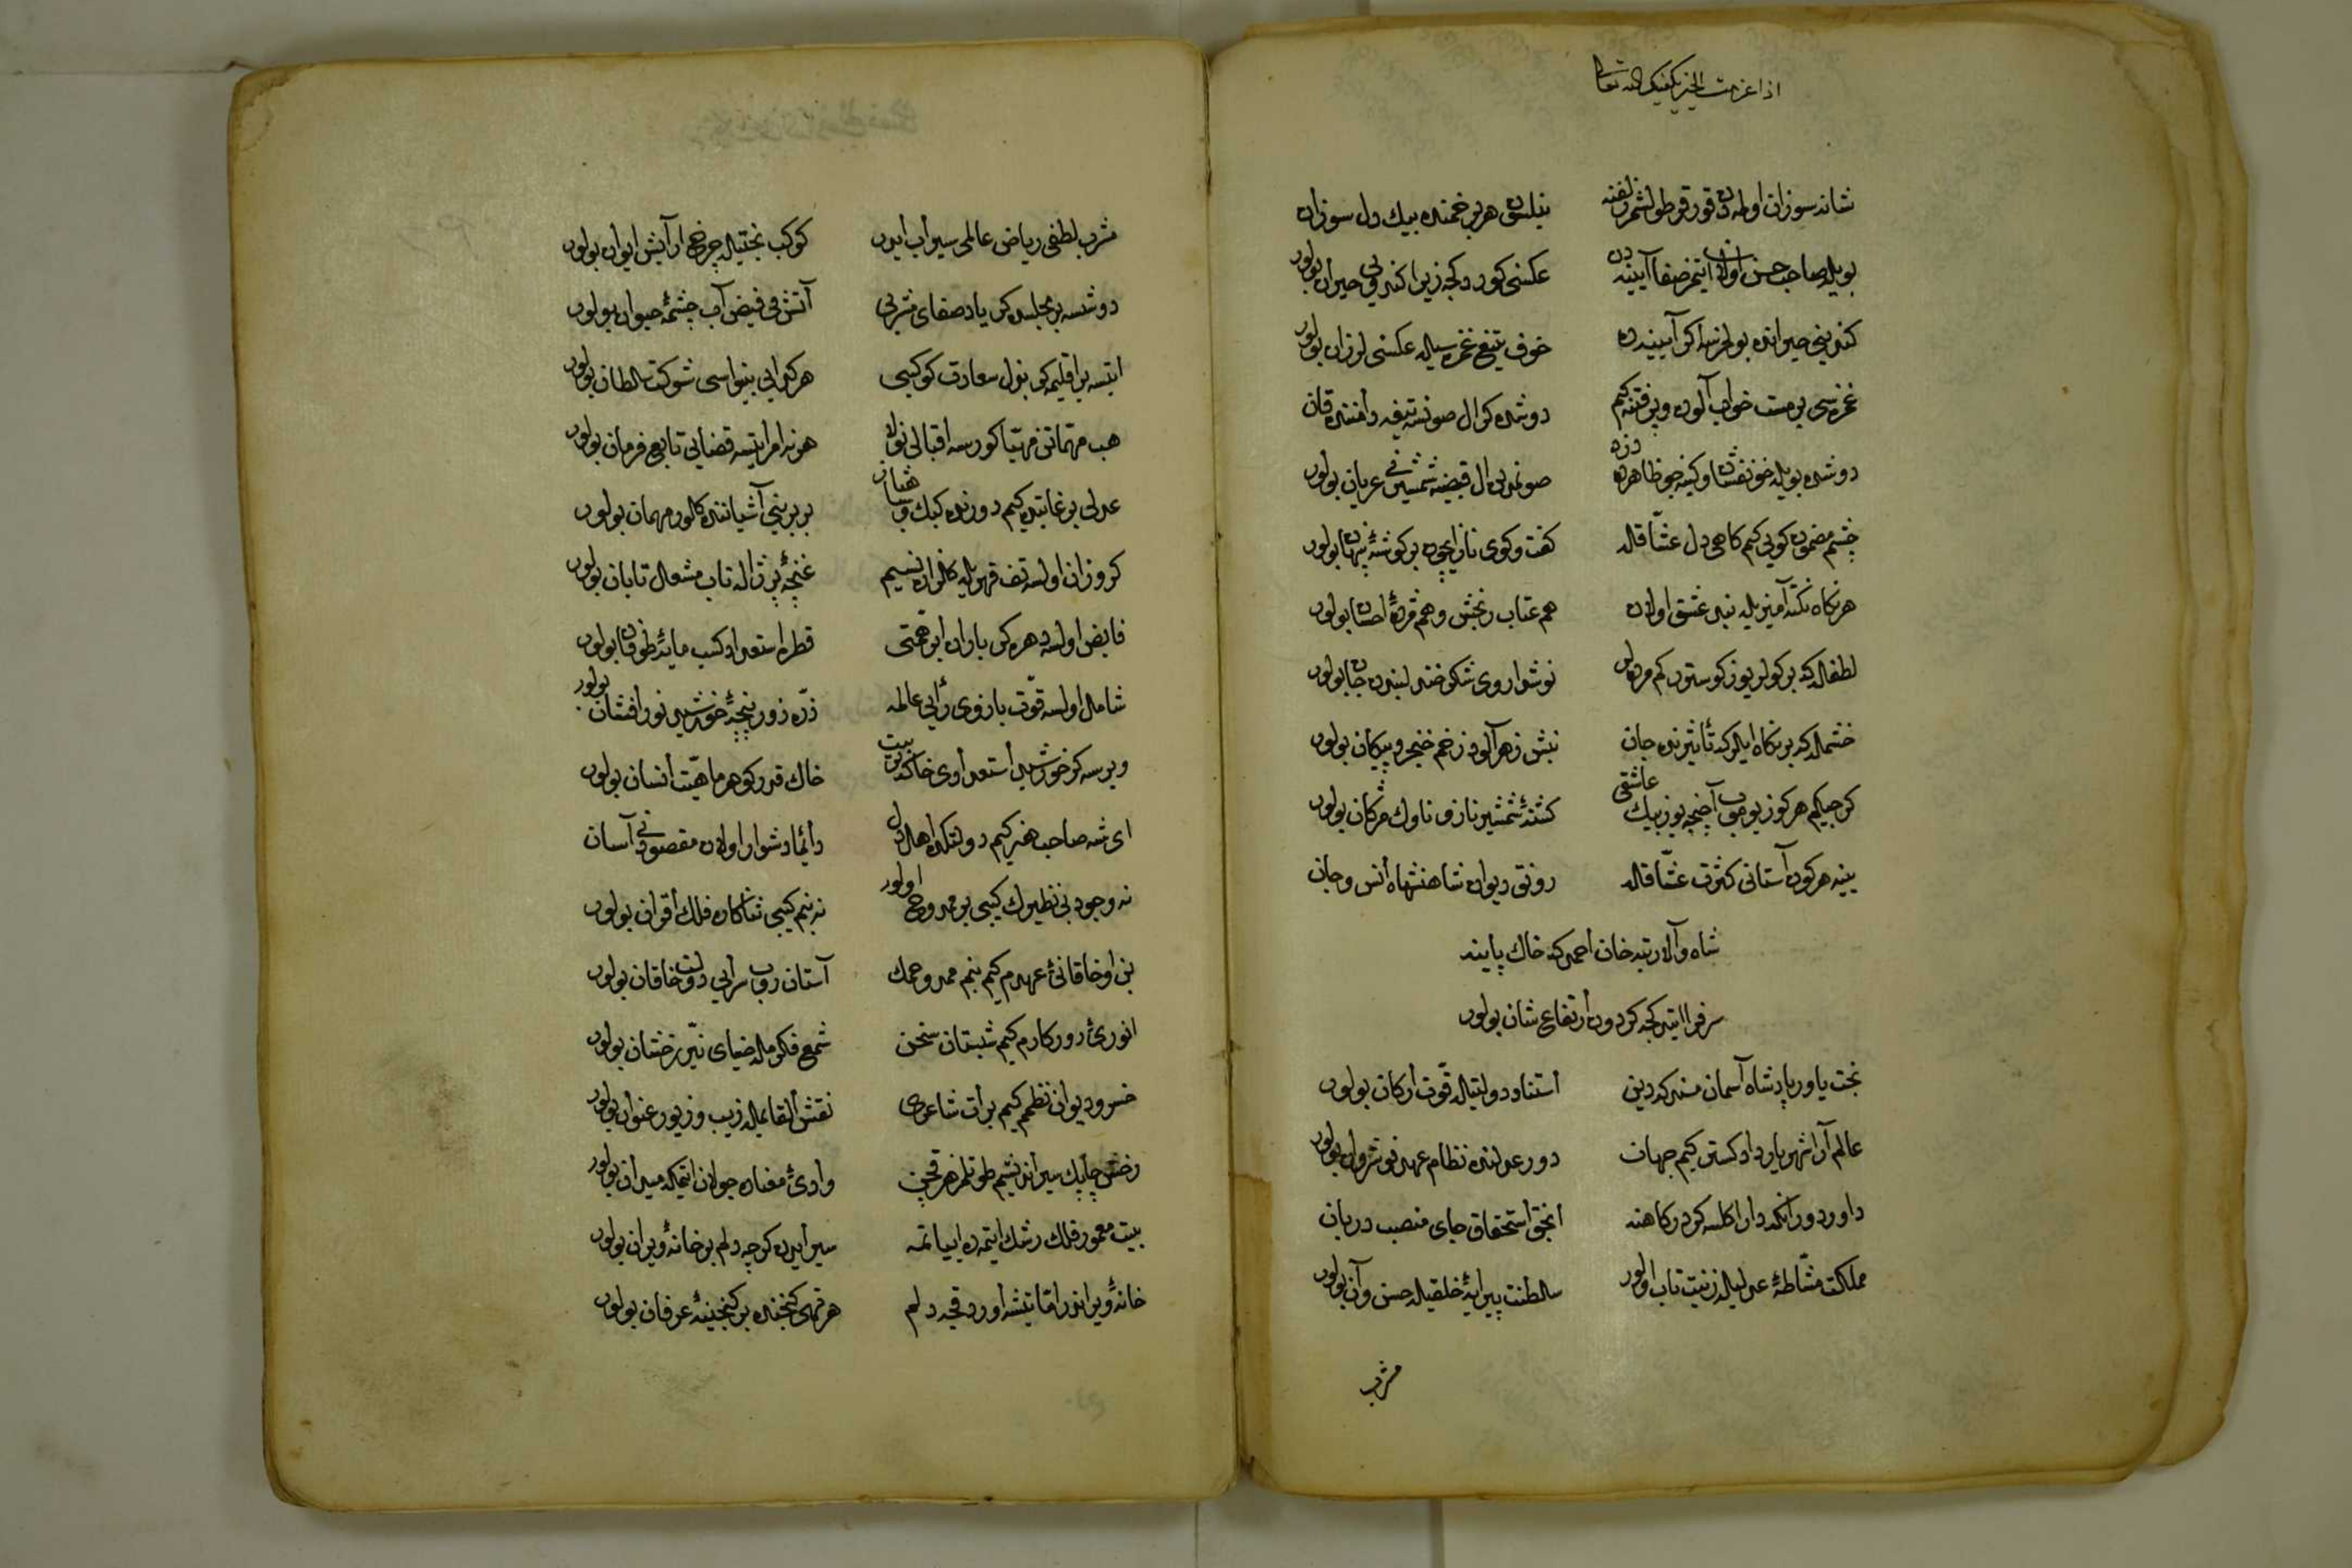 اذا عزمت الخير يكفيك الله تعالى
شانه سوزان اولمه دن قورقر طولشمز زلفنه بيلسون هر بر خمنده بيك دل سوزان
بويله صاحب حسن اولان ايتمز صفا آيينه دن عكسنى كوردكجه زيرا كندوبى حيران بولور
كندينى حيرانده بولمزسه اكر آيينه ده خوف تيغ غمزه سيله عكسنى لرزان بولور
غمزه سى بر مست خواب آلوده وپر فتنه كيم دوشده كر ال صونسه تيغه دامننده قان
دوشده بويله خونفشان اوكينه جو ظاهرده صونمدين ال قبضه شمشيرنى عريان بولور
چشم مضمون كويى كيم كاهى دل عشاقله كفت وكوى ناز ايچون بر كوشه پنهان بولور
هر نكاه نكته آميزيله بيدل عشق اولان هم عتاب رنجش وهم مژده احسان بولور
لطفله كه بر كولر يوز كوسترر كم مرده لر نوش داروى شكر خند لبندن جان بولور
خشمله كه بر نكاه ايلركه تأثيرنده جان نيش زهر آلود زخم خنجر وپيكان بولور
كرچه كيم هر كوز يوموب آچنجه يوز بيك عاشقى كشته شمشير ناز وناوك مژكان بولور
ينه هر كون آستانى كثرت عشاقله رونق ديوان شاهنشاه انس وجان
شاه والا رتبه خان احمد كه خاك پاينه
سرفرو ايتدكجه كردون ارتفاع شان بولور
بخت ياور پادشاه آسمان مسند كه دين استناد دولتيله قوت اركان بولور
عالم آرا شهريار دادكستر كيم جهان دور عدلنده نظام عهد نوشروان بولور
داور دوران كه دارا كلسه كر دركاهنه انجق استحقاق جاى منصب دربان
مملكت مشاطه عدليله زينت ياب اولور سلطنت پيرايه خلقيله حسن وآن بولور
مشرب
مشرب لطفى رياض عالمى سيراب ايدر كوكب بختيله چرخ آرايش ايوان بولور
دوشسه بر مجلسده كر ياد صفاى مشربى آتش مى فيض آب چشمه حيوان بولور
ايتسه بر اقليمه كر بذل سعادت كوكبى هر كداى بينواسى شوكت سلطان بولور
هب مهماتن مهيا كورسه اقبالى نوله هر نه امر ايتسه قضايى تابع فرمان بولور
عدلى بر غايتده كيم دورنده كبك وشاهباز بربرينى آشياننده كلور مهمان بولور
كر وزان اولسه تف قهريله كلزاره نسيم غنچه پر ژاله تاب مشعل تابان بولور
فايض اولسه دهره كر باران ابر همتى قطره استعداد كسب مايه طوفان بولور
شامل اولسه قوت بازوى رأيى عالمه ذره زور پنجه خورشيد نور افشان بولور
ويرسه كر خورشيد استعدادى خاكه تربيت خاك قدر كوهر ماهيت انسان بولور
اى شه صاحب هنر كيم دولتكده اهل دل دائما دشوار اولان مقصودنى آسان
نه وجود بى نظيرك كيبى بر ممدوح اولور نه بنم كيبى ثناكاره فلك اقران بولور
بن او خاقانئ عهدم كيم بنم ممدوحمك آستان روب سرايى دولت خاقان بولور
انورئ روزكارم كيم شبستان سخن شمع فكرمله ضياى نير رخشان بولور
خسرو ديوان نظمم كيم برات شاعرى نقش القابمله زيب وزيور عنوان بولور
رخش چابك سير انديشه م طوتلمز هر قچن وادئ معناده جولان ايتمكه ميدان بولور
بيت معمور فلك رشك ايتمده ابياتمه سير ايدن كرچه دلم بر خانه ويران بولور
خانه ويراندر اما تيشه اوردقجه دلم هر قچن كنجنده بر كنجينه عرفان بولور